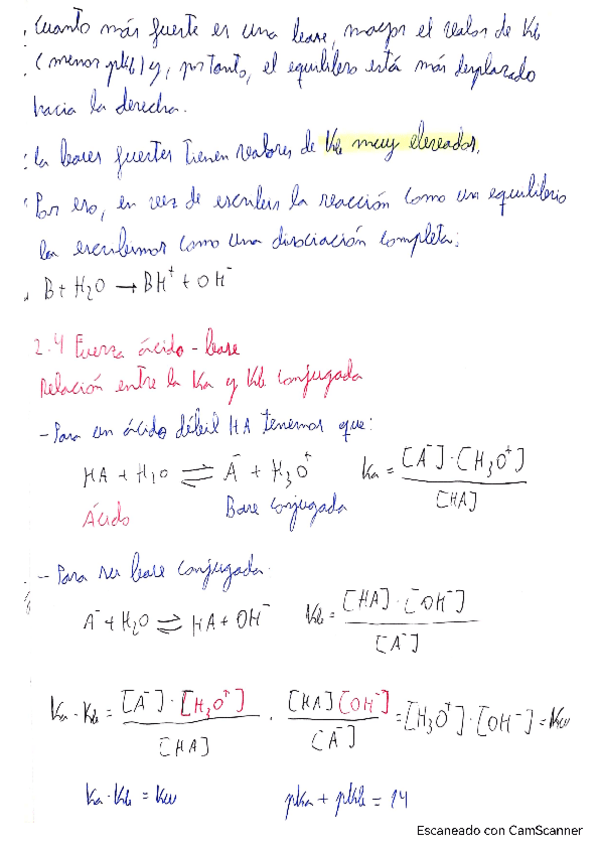 Cuanto más fuerte es una base, mayor el valor de Kb
(menor pKb) y, por tanto, el equilibrio está más desplazado
hacia la derecha.
La bases fuertes tienen valores de Kb muy elevados.
Por eso, en vez de escribir la reacción como un equilibrio
la escribimos como una disociación completa:
B + H₂O → BH⁺ + OH⁻
2.4 Fuerza ácido-base
Relación entre la Ka y Kb conjugada
- Para un ácido débil HA tenemos que:
HA + H₂O ⇌ A⁻ + H₃O⁺ Ka = [A⁻]·[H₃O⁺] / [HA]
Ácido Base conjugada
- Para su base conjugada.
A⁻ + H₂O ⇌ HA + OH⁻ Kb = [HA]·[OH⁻] / [A⁻]
Ka · Kb = [A⁻]·[H₃O⁺] / [HA] · [HA][OH⁻] / [A⁻] = [H₃O⁺]·[OH⁻] = Kw
Ka·Kb = Kw pKa + pKb = 14
Escaneado con CamScanner